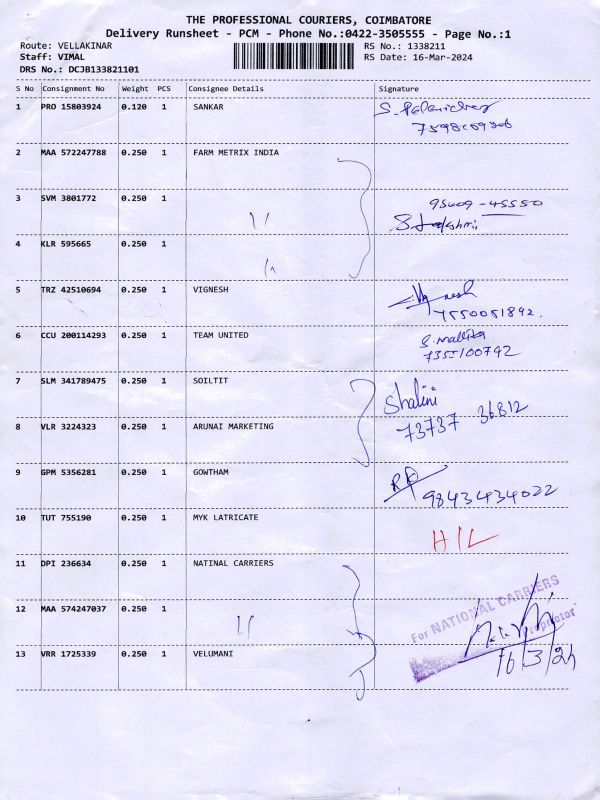 THE PROFESSIONAL COURIERS, COIMBATORE
Delivery Runsheet - PCM - Phone No.:0422-3505555 - Page No.:1
Route: VELLAKINAR RS No.: 1338211
Staff: VIMAL RS Date: 16-Mar-2024
DRS No.: DCJB133821101
S No Consignment No Weight PCS Consignee Details Signature
1 PRO 15803924 0.120 1 SANKAR
2 MAA 572247788 0.250 1 FARM METRIX INDIA
3 SVM 3801772 0.250 1 95009-45550
"
4 KLR 595665 0.250 1
"
5 TRZ 42510694 0.250 1 VIGNESH Vignesh
7550051892.
6 CCU 200114293 0.250 1 TEAM UNITED S. Mallika
7355100792
7 SLM 341789475 0.250 1 SOILTIT Shalini
73737 36812
8 VLR 3224323 0.250 1 ARUNAI MARKETING
9 GPM 5356281 0.250 1 GOWTHAM
9843434022
10 TUT 755190 0.250 1 MYK LATRICATE
HIL
11 DPI 236634 0.250 1 NATINAL CARRIERS
For NATIONAL CARRIERS
12 MAA 574247037 0.250 1
" Proprietor
13 VRR 1725339 0.250 1 VELUMANI 16/3/24